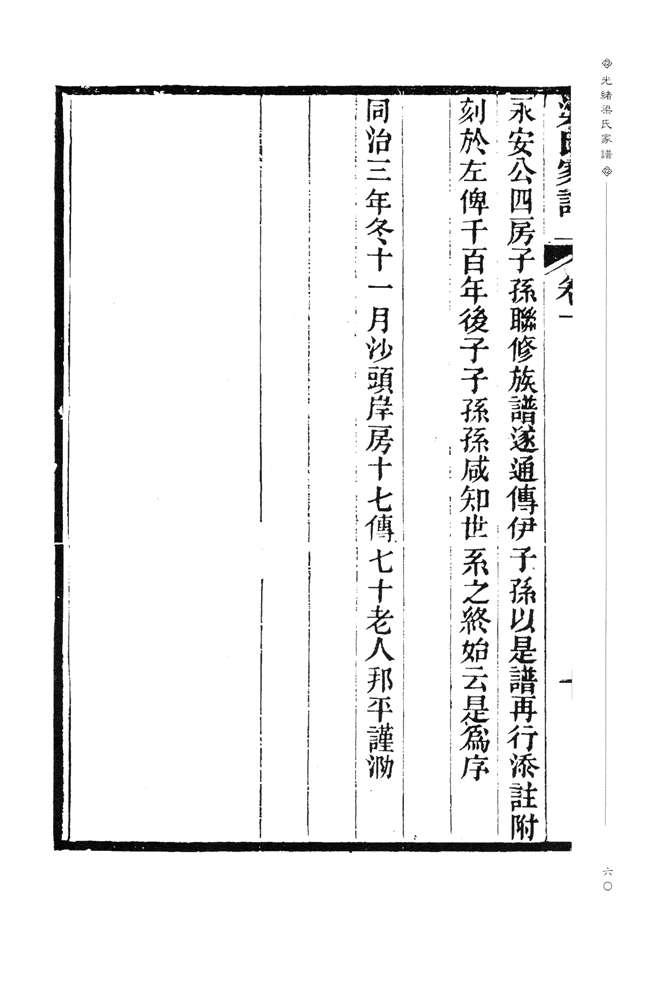 光緒梁氏家譜
六〇
梁氏家譜 卷一
永安公四房子孫聯修族譜遂通傳伊子孫以是譜再行添註附
刻於左俾千百年後子子孫孫咸知世系之終始云是爲序
同治三年冬十一月沙頭岸房十七傳七十老人邦平謹泐